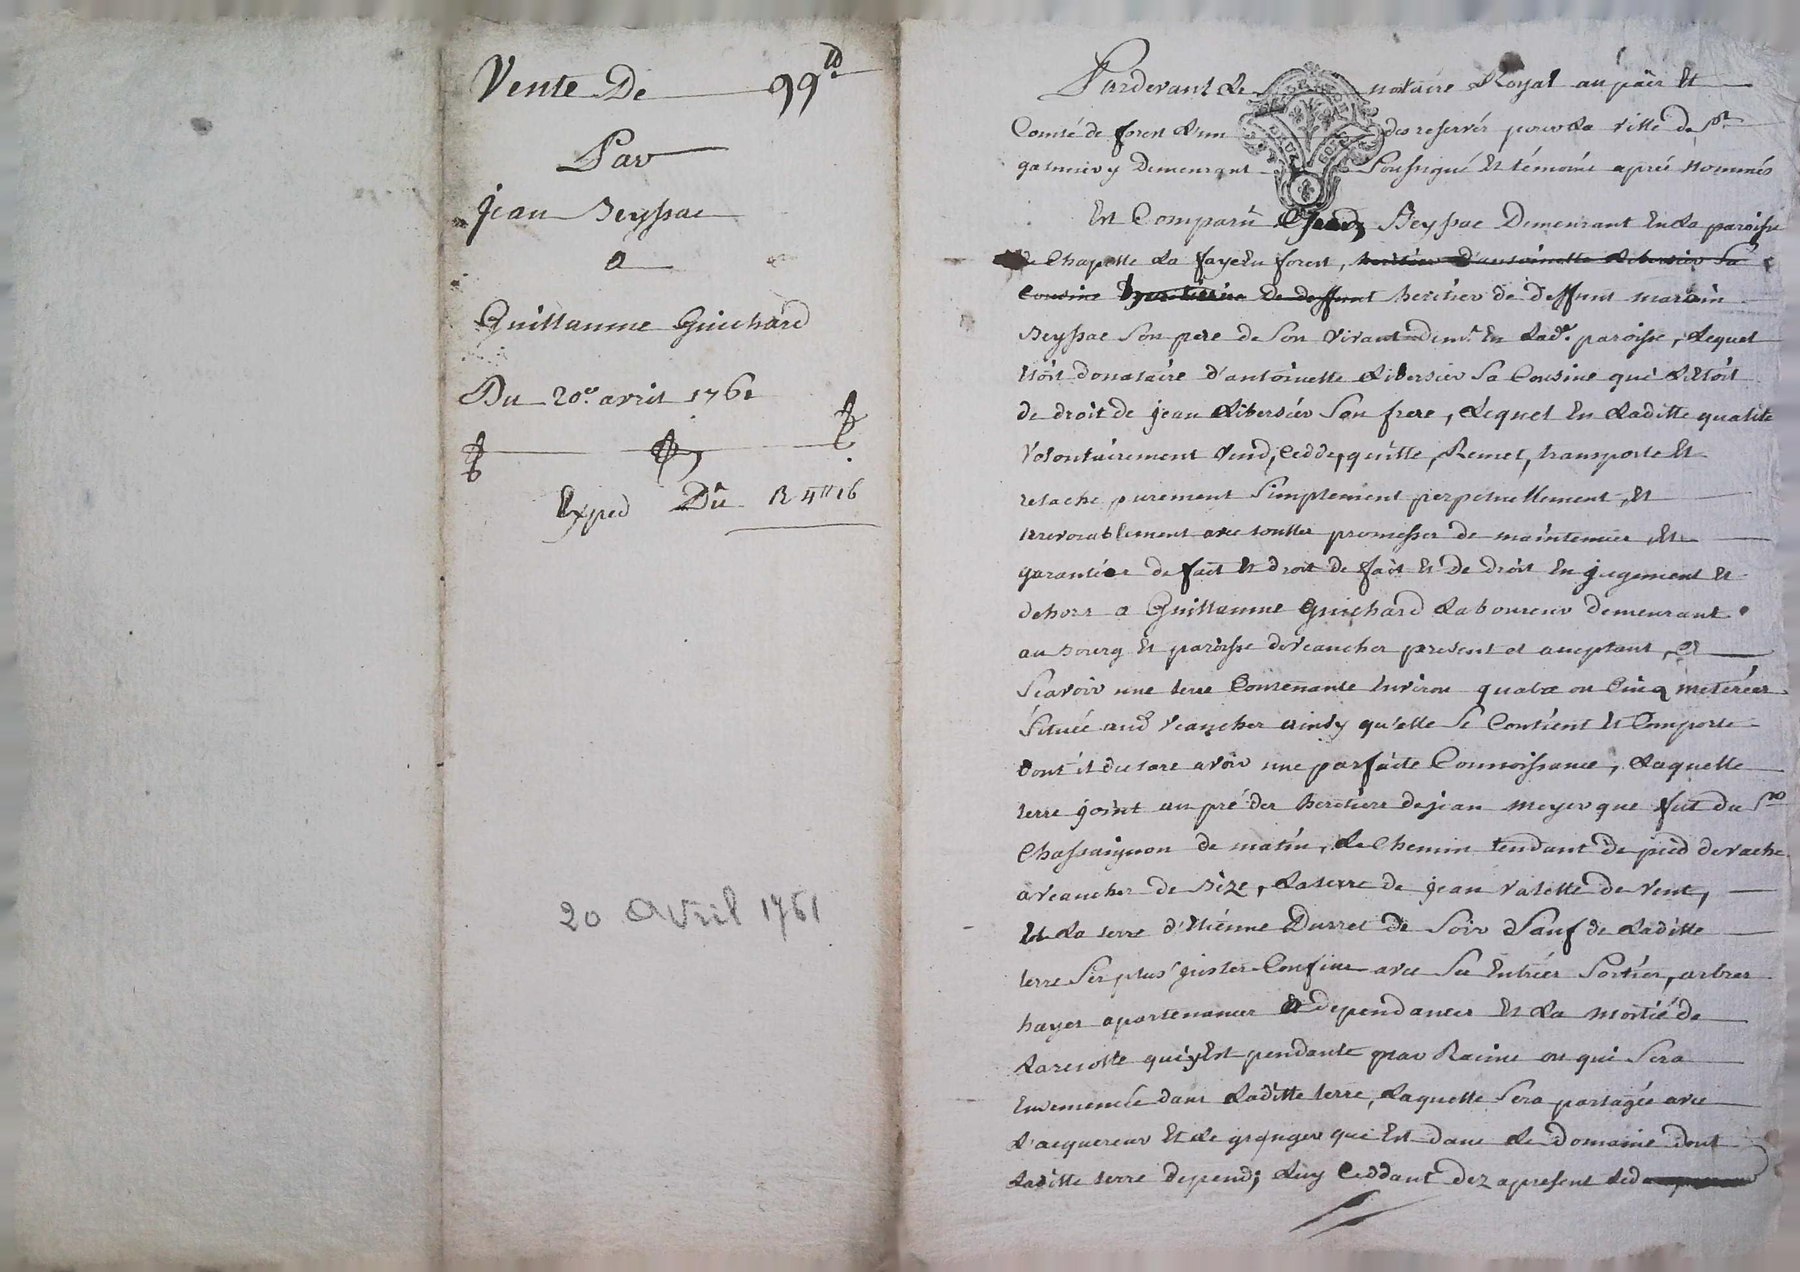 Vente De 99ᵗᵗ
Par
jean Beyssac
a
Guillaume Guichard
Du 20ᵉ avril 1761
Exped Dû R 4ᵗᵗ 16
20 Avril 1761
Pardevant Le notaire Royal au païs Et
Comté de forest L'un des reservés pour La ville de Sᵗ
galmier y Demeurant Soussigné Et témoins après Nommés
Est Comparû Jean Beyssac Demeurant En La paroisse
de Chapelle La faye En forest, heritier d'antoinette Libersier Sa
Cousine heritière De deffunt heritier de deffunt marcin
Beyssac Son pere de Son vivant dem.ᵗ En Lad.ᵉ paroisse, Lequel
Etoit donataire d'antoinette Libersier Sa Cousine qui L'Etoit
de droit de jean Libersier Son frere, Lequel En Laditte qualité
Volontairement Vend, Cedde, quitte, Remet, transporte Et
relache purement Simplement perpetuellement, Et
irrevocablement avec touttes promesses de maintenir, Et
garantir de fait Et droit de fait Et De droit En jugement Et
dehors a Guillaume Guichard Laboureur demeurant
au Bourg Et paroisse de Veauches present et aceptant,
Scavoir une terre Contenante Environ quatre ou Cinq meterées
Située aud Veauches ainsy qu'elle Se Contient Et Comporte
dont il declare avoir une parfaite Connoissance, Laquelle
terre joint au pré des heritiers de jean meyer que fut du Sʳ
Chassaignon de matin, Le Chemin tendant de pied de vache
a Veauches de Bize, La terre de jean Valette de Vent,
Et La terre d'Etienne Durret de Soir Sauf de Laditte
terre Ses plus justes Confins avec Ses Entrées Sorties, arbres
hayes apartenances Et dependances Et La moitié de
La recolte qui y Est pendante par Racine ou qui Sera
Ensemencée dans Laditte terre, Laquelle Sera partagée avec
L'acquereur Et Le granger qui Est dans Le domaine dont
Laditte terre depend; Luy Ceddant dez apresent